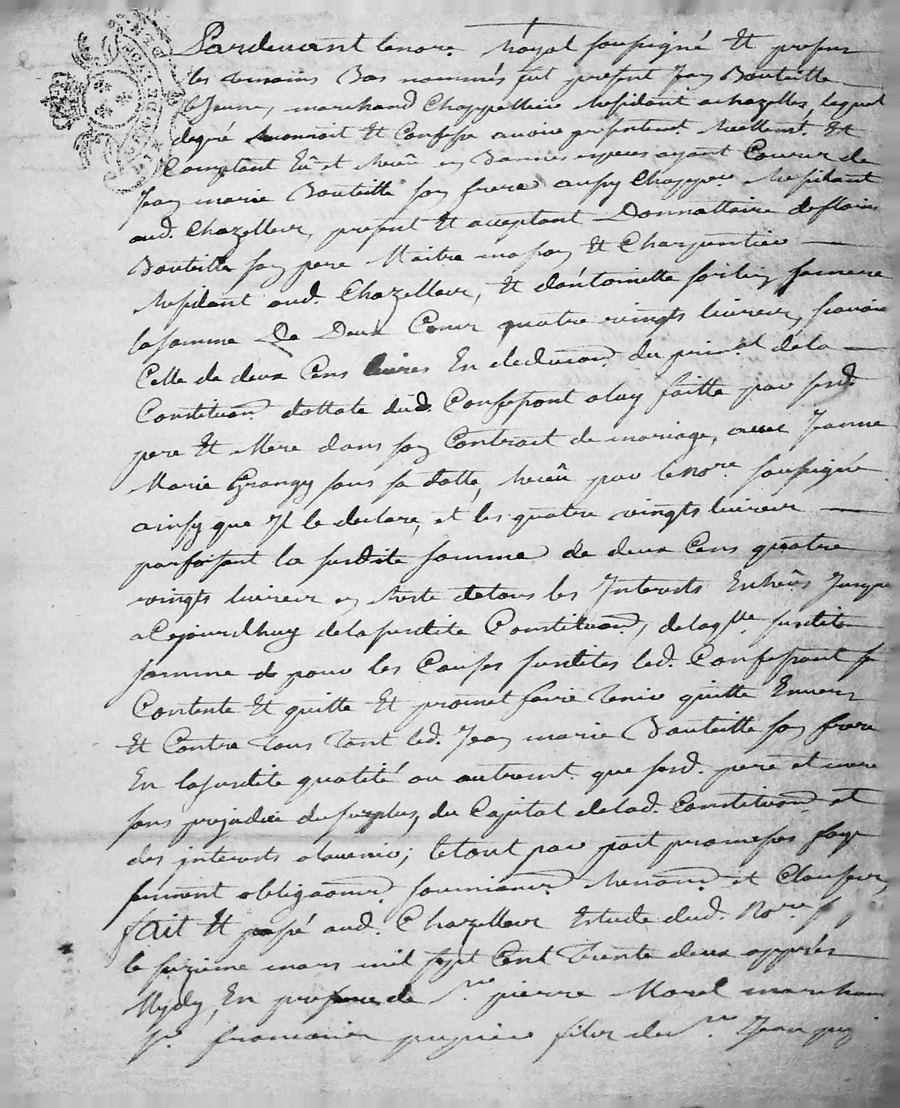 Pardevant lenore. Royal soussigné Et presens
les temoins Bas nommés fut present Jean Bouteille
le Jeune, marchand Chappellier Residant a chazelles, lequel
degré reconnoit Et Confesse avoir presentemt. Reellemt. Et
Comptant Eû et Receû en Bonnes especes ayant Cours de
Jean marie Bouteille son frere aussy Chapper. Residant
aud. Chazelles, present Et acceptant Donnattaire de
Bouteille son pere Maitre masson Et Charpentier
Residant aud. Chazelles, Et d'antoinette sa mere
la somme De Deux Cens quatre vingts livres, scavoir
Celle de deux Cens livres En deduction du prinal. dela
Constituon. dottale dud. Confessant a luy faitte par sesd.
pere Et Mere dans son Contrait de mariage, avec Jeanne
Marie Grangy sous sa datte, Receû par lenore. soussigné
ainsy que Il le declare, et les quatre vingts livres
parfaisant la susditte somme de deux Cens quatre
vingts livres en Reste detous les Interests Echeûs Jusques
a Cejourdhuy delasusditte Constituon., delaqlle. susditte
somme et pour les Causes susdittes led. Confessant se
Contente Et quitte Et promet faire tenir quitte Envers
Et Contre tous tant led. Jean marie Bouteille son frere
En lasusditte qualité ou autremt. que sesd. pere et mere
sans prejudice du surplus du Capital delad. Constituon. et
des interests a lavenir; le tout par part promesses foy
serment obligaons. soumissons. Renons. et Clauses,
fait Et passé aud. Chazelles Estude dud. Nore.
le sizieme mars mil sept Cent trente deux appres
Mydy, En presence de sr. pierre Morel marchand
sr. filz de sr. Jean